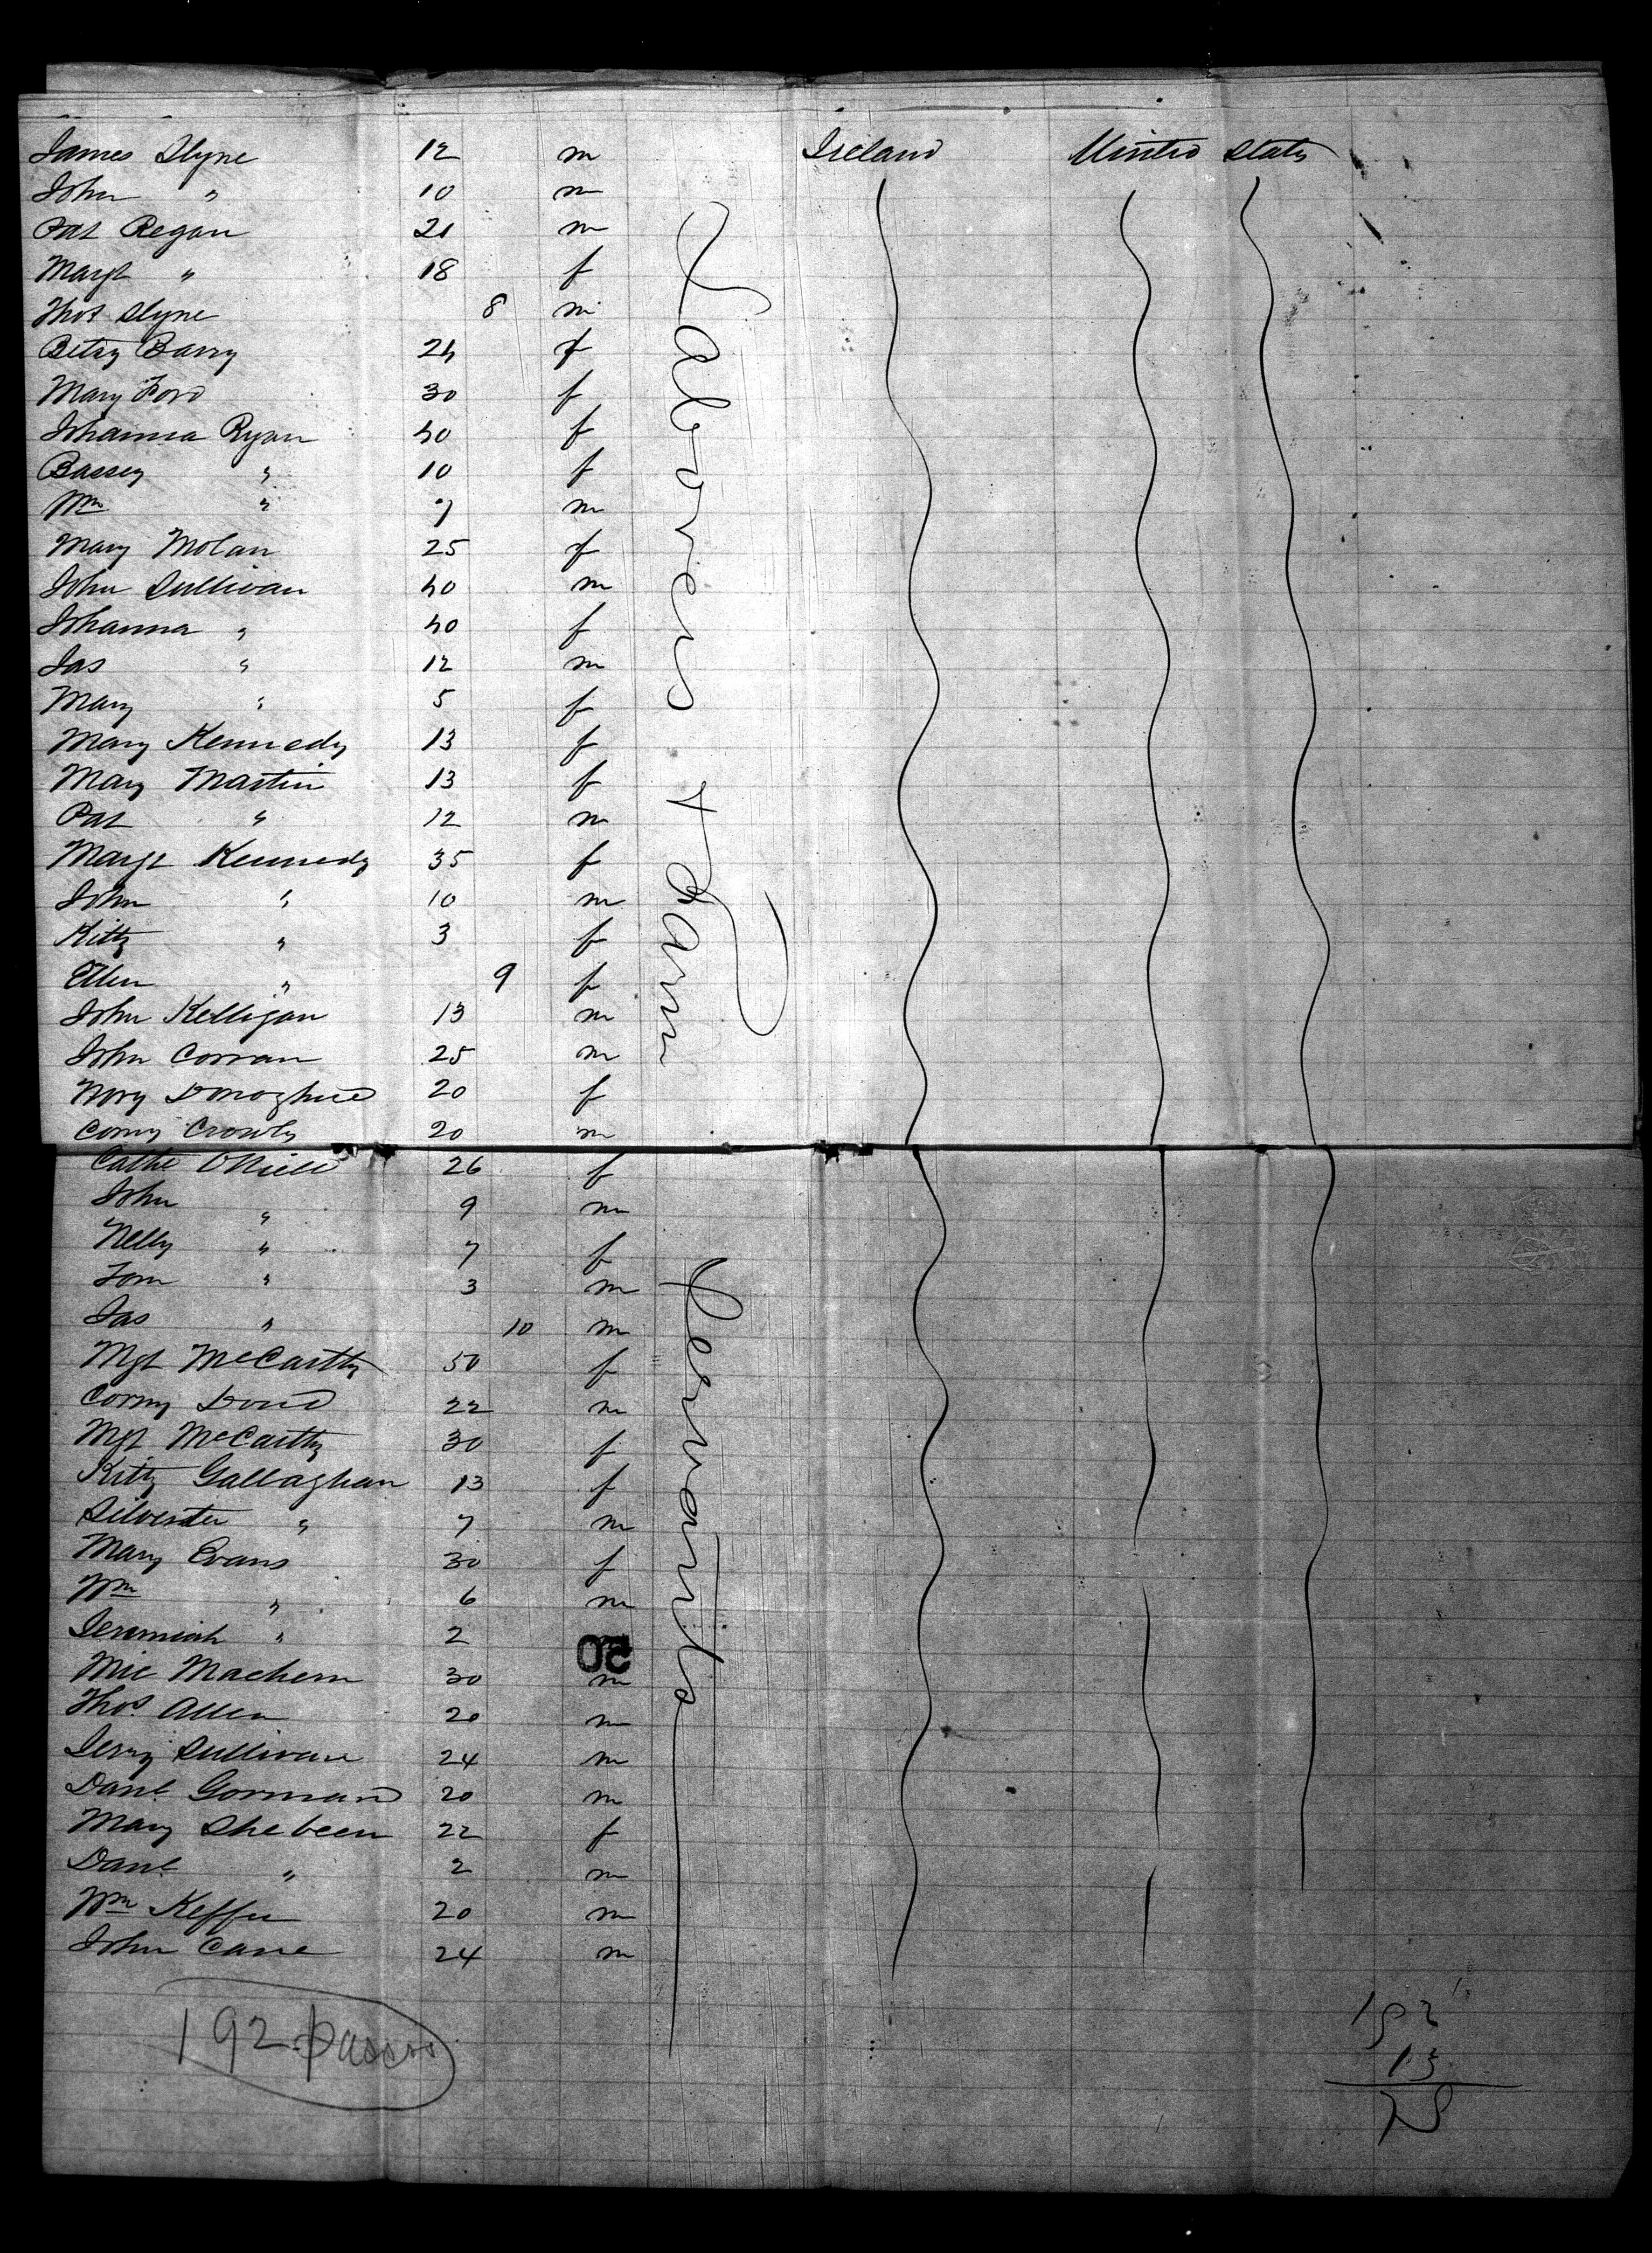 James Slyne 12 m Ireland United States
John " 10 m
Pat Regan 21 m
Margt " 18 f
Thos Slyne 8 m
Betsy Barry 24 f
Mary Ford 30 f
Johanna Ryan 40 f
Bassey " 10 f
Wm " 7 m
Mary Molan 25 f
John Sullivan 40 m
Johanna " 40 f
Jas " 12 m
Mary " 5 f
Mary Kennedy 13 f
Mary Martin 13 f
Pat " 12 m
Margt Kennedy 35 f
John " 10 m
Kitty " 3 f
Ellen " 9 f
John Kelligan 13 m
John Corran 25 m
Nory Donoghue 20 f
Corny Crowly 20 m
Labourers & Farm
Cathe ONeill 26 f
John " 9 m
Nelly " 7 f
Tom " 3 m
Jas " 10 m
Mgt McCarthy 50 f
Corny 22 m
Mgt McCarthy 30 f
Kitty Gallaghan 13 f
Silvester " 7 m
Mary Evans 30 f
Wm " 6 m
Jeremiah " 2
50
Mic Machem 30 m
Thos Allen 20 m
Jerry Sullivan 24 m
Danl Gorman 20 m
Mary Shebeen 22 f
Danl " 2 m
Wm Keffe 20 m
John Cane 24 m
Servants
192 passrs
192
13